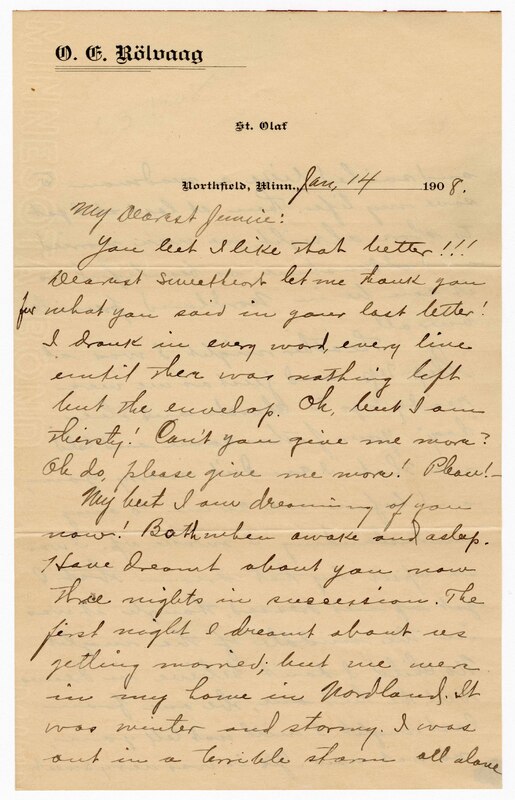 O. E. Rölvaag
St. Olaf
Northfield, Minn., Jan, 14 1908.
My Dearest Jennie:
You bet I like that better!!!
Dearest sweethert let me thank you
for what you said in your last letter!
I drank in every word, every line
until ther was nothing left
but the envelop. Oh, but I am
thirsty! Can't you give me more?
Oh do, please give me more! Please!-
My but I am dreaming of you
now! Both when awake and aslep.
Have dreamt about you now
three nights in succession. The
first night I dreamt about us
getting married; but we were
in my home in Nordland. It
was winter and stormy. I was
out in a terrible storm all alone